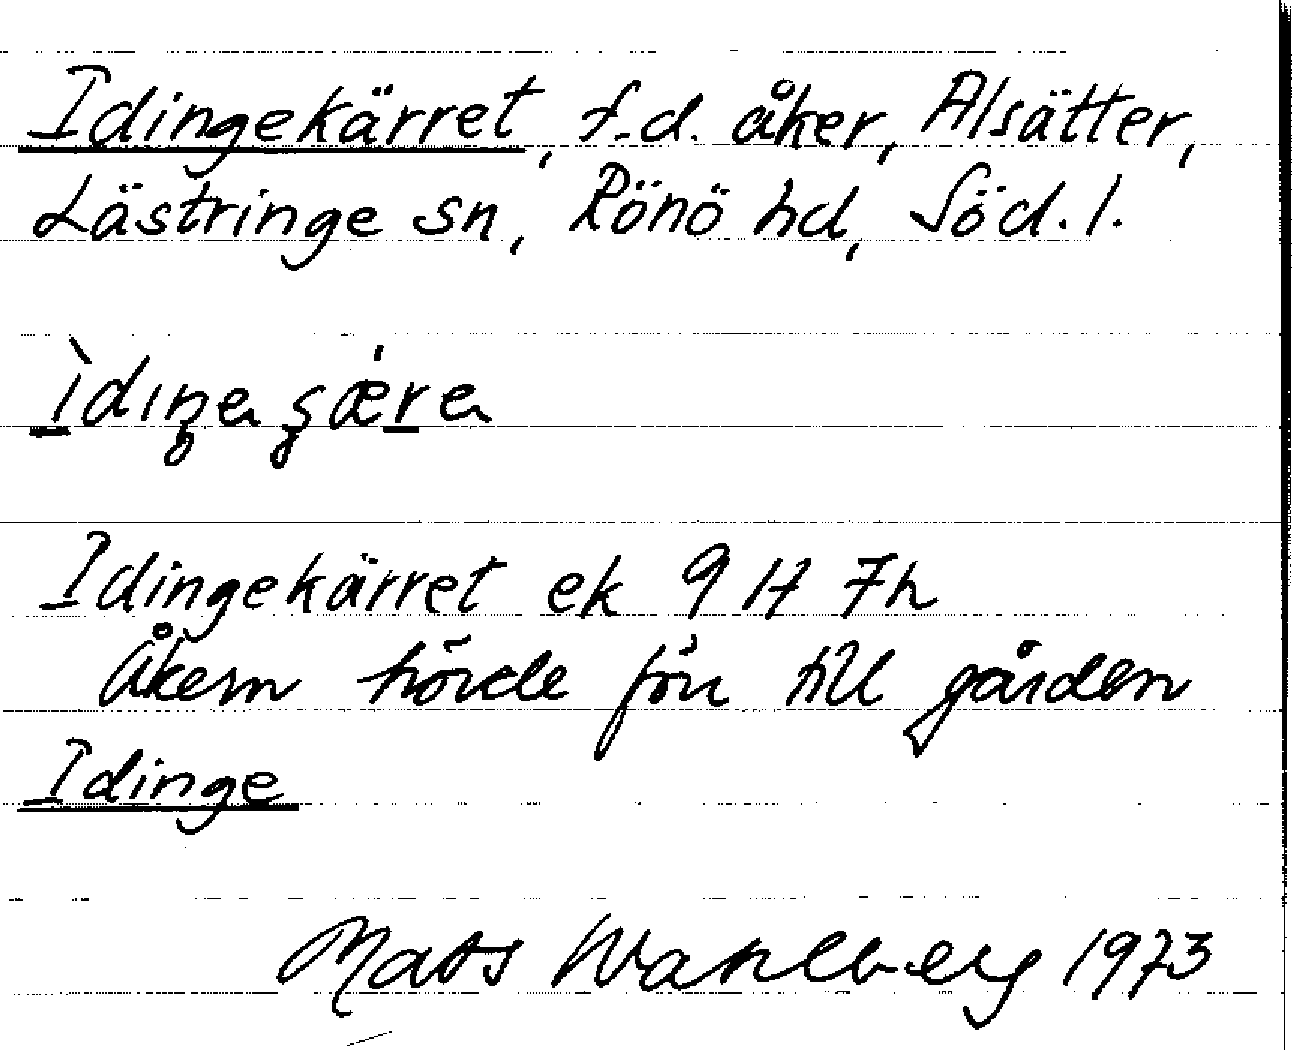 Idingekärret, f.d. åker, Alsätter,
Lästringe sn, Rönö hd, Söd. l.
Idingekärret ek 9 H 7h
Åkern hörde förr till gården
Idinge
Mats Wahlberg 1973